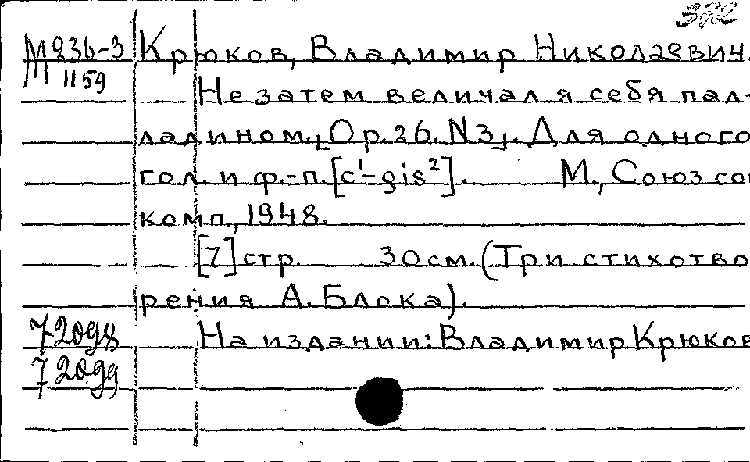 М 936-3 Крюков, Владимир Николаевич.
М 1159
Не затем величал я себя пал-
ладином. [Ор. 26. N3]. Для одного
гол. и ф.-п. [c¹-gis²]. М., Союз сов
комп., 1948.
[7] стр. 30 см. (Три стихотво
рения А. Блока).
72098 На издании: Владимир Крюков
72099